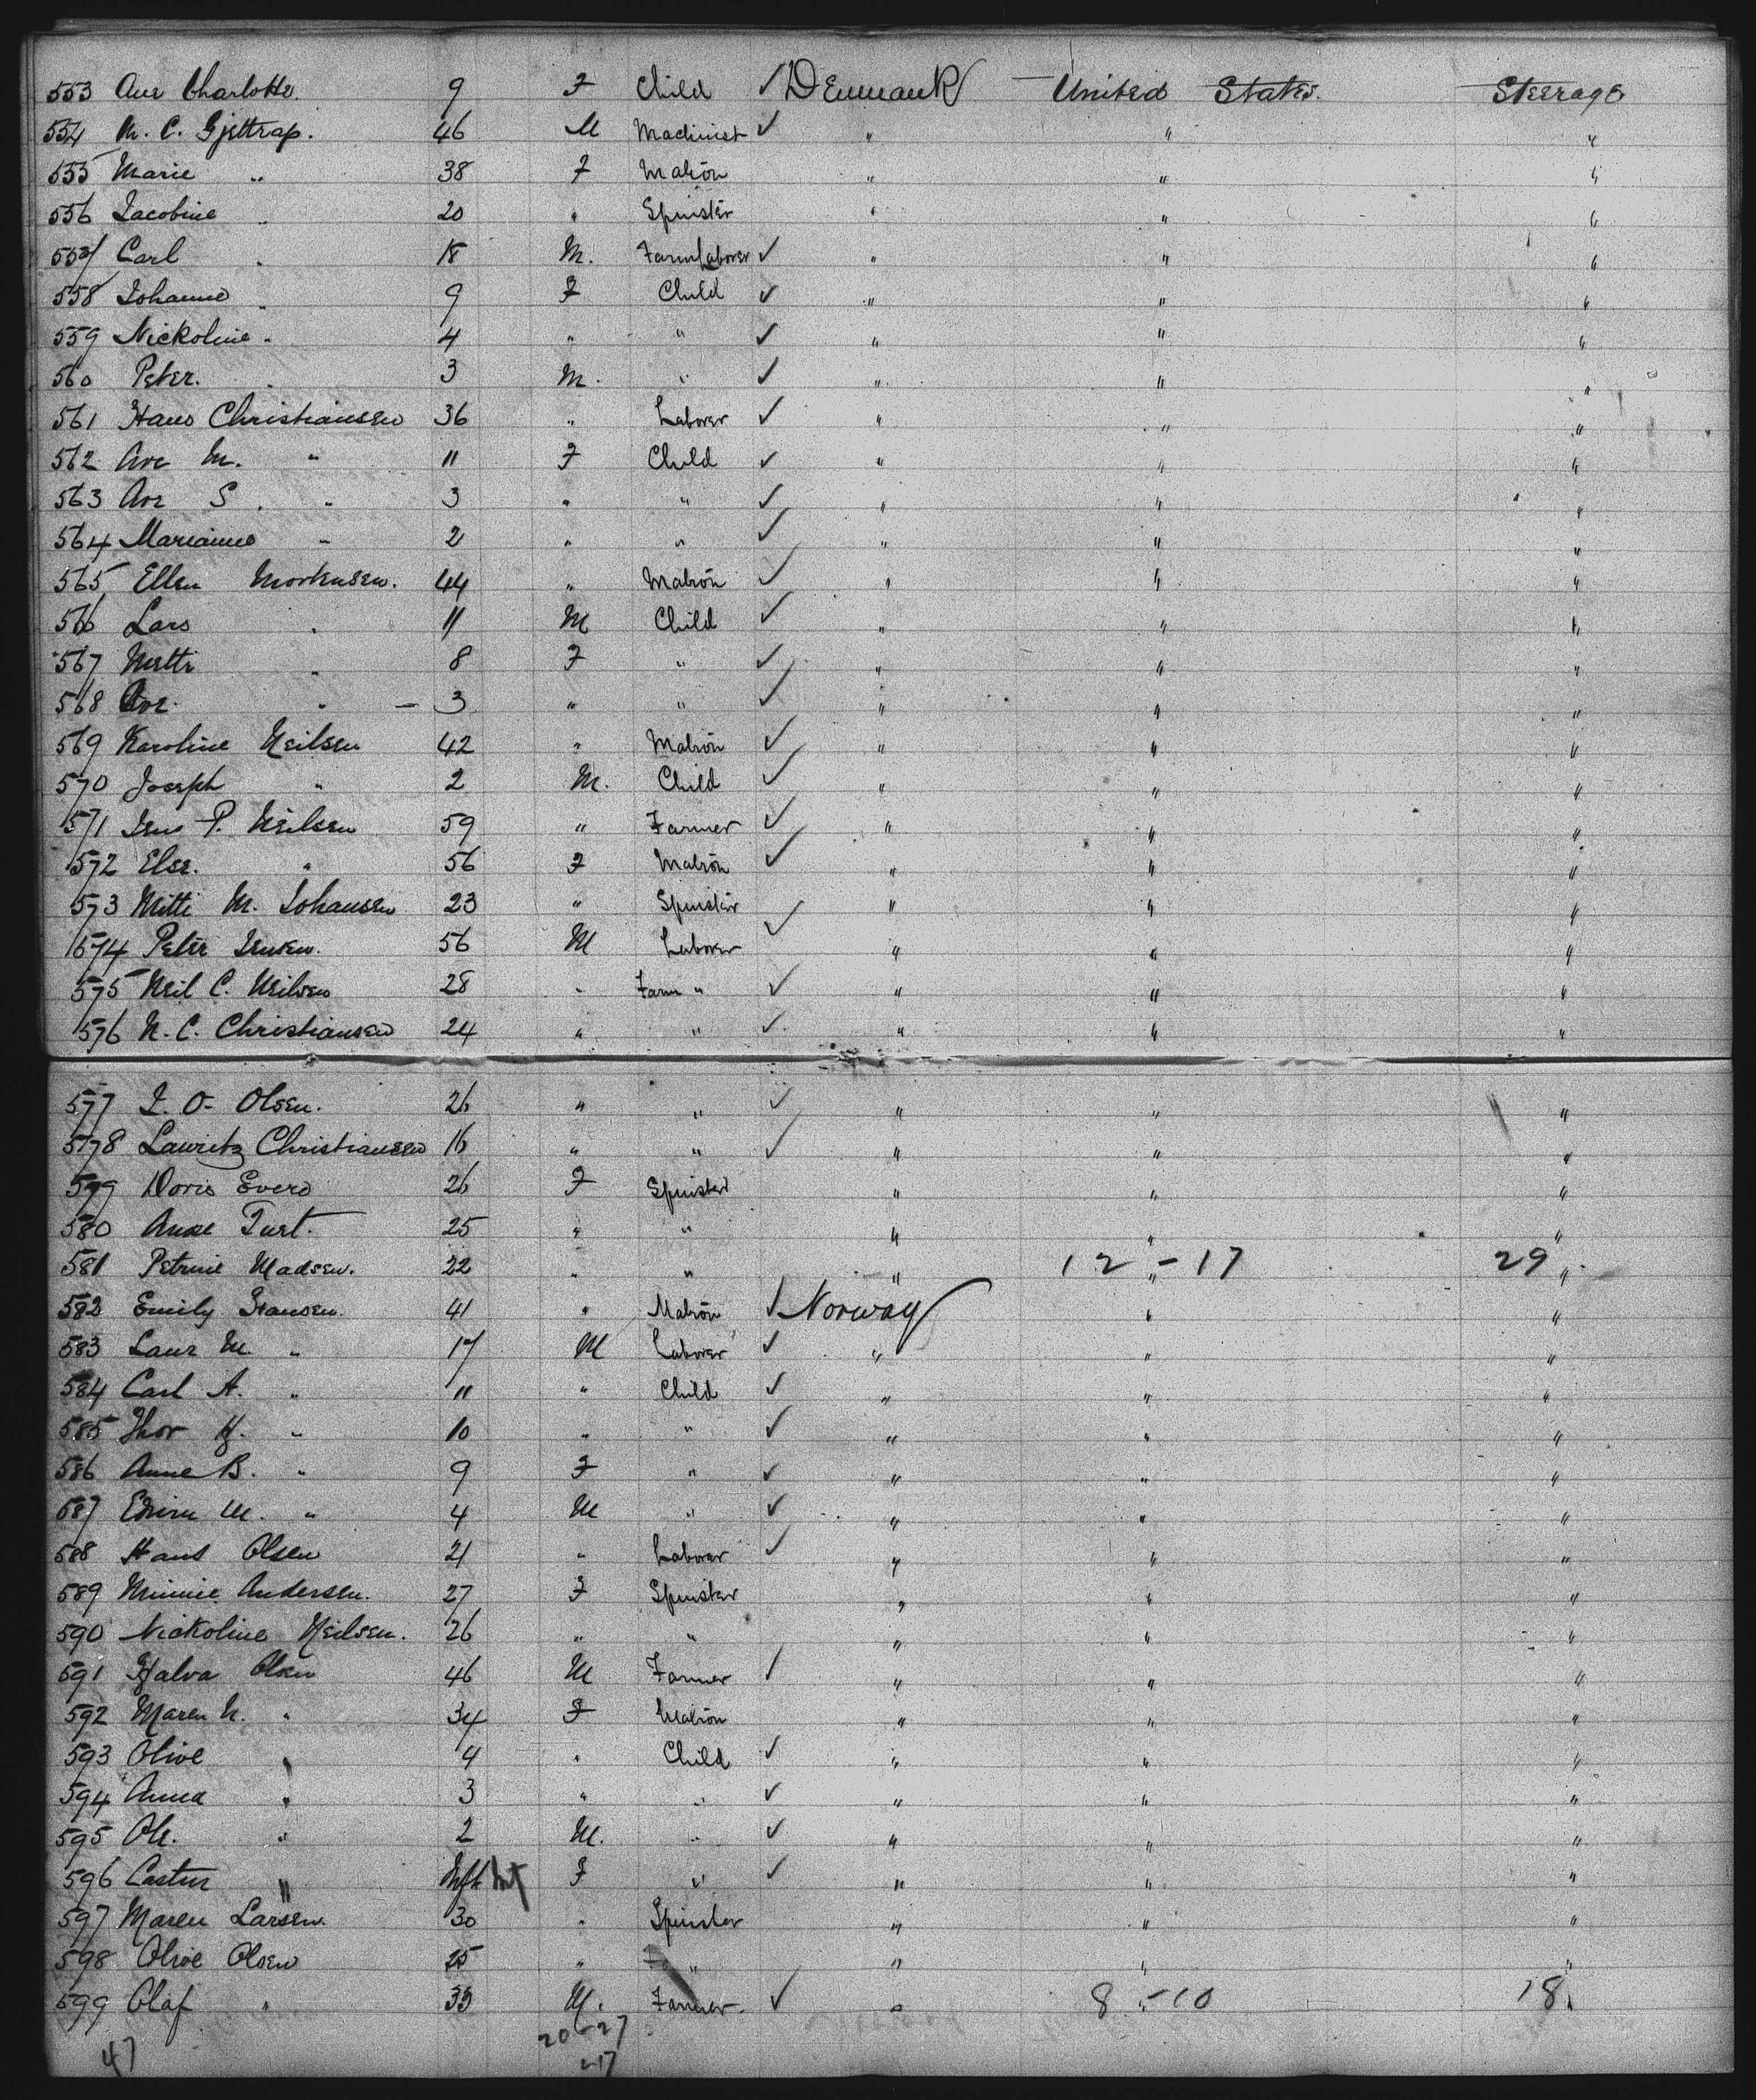 553 Ane Charlotte. 9 F Child ✓ Denmark United States. Steerage
554 M. C. Gjettrap. 46 M Machinist ✓ " " "
555 Marie " 38 F Matron " " "
556 Jacobine " 20 " Spinster " " "
557 Carl " 18 M. Farm Laborer ✓ " " "
558 Johanne " 9 F Child ✓ " " "
559 Nickoline " 4 " " ✓ " " "
560 Peter. " 3 M. " ✓ " " "
561 Hans Christiansen 36 " Laborer ✓ " " "
562 Ane M. " 11 F Child ✓ " " "
563 Ane S. " 3 " " ✓ " " "
564 Marianne " 2 " " ✓ " " "
565 Ellen Mortensen. 44 " Matron ✓ " " "
566 Lars " 11 M Child ✓ " " "
567 Mette " 8 F " ✓ " " "
568 Ane. " — 3 " " ✓ " " "
569 Karoline Neilsen 42 " Matron ✓ " " "
570 Joseph " 2 M. Child ✓ " " "
571 Jens P. Neilsen 59 " Farmer ✓ " " "
572 Else. " 56 F Matron ✓ " " "
573 Mitti M. Johansen 23 " Spinster " " "
574 Peter Jensen. 56 M Laborer ✓ " " "
575 Neil C. Neilsen 28 " Farm " ✓ " " "
576 N. C. Christiansen 24 " " ✓ " " "
577 J. O. Olsen. 26 " " ✓ " " "
578 Lauritz Christiansen 16 " " ✓ " " "
579 Doris Evers 26 F Spinster " " "
580 Anne 25 " " " " "
581 Petrine Madsen. 22 " " " 12 " - 17 29 "
582 Emily Hansen. 41 " Matron ✓ Norway " "
583 Laur M. " 17 M Laborer ✓ " " "
584 Carl A. " 11 " Child ✓ " " "
585 Thor H. " 10 " " ✓ " " "
586 Anne B. " 9 F " ✓ " " "
587 M. " 4 M " ✓ " " "
588 Hans Olsen 21 " Laborer ✓ " " "
589 Minnie Andersen. 27 F Spinster " " "
590 Nickoline Neilsen. 26 " " " " "
591 Halva Olsen 46 M Farmer / " " "
592 Maren N. " 34 F Matron " " "
593 Olive " 4 " Child ✓ " " "
594 Anna " 3 " " ✓ " " "
595 Ole. " 2 M. " ✓ " " "
596 " Inft F " ✓ " " "
597 Maren Larsen. 30 " Spinster " " "
598 Olive Olsen 25 " " " " "
599 Olaf " 33 M. Farmer. ✓ " 8 " - 10 18 "
47 20 - 27
- 17